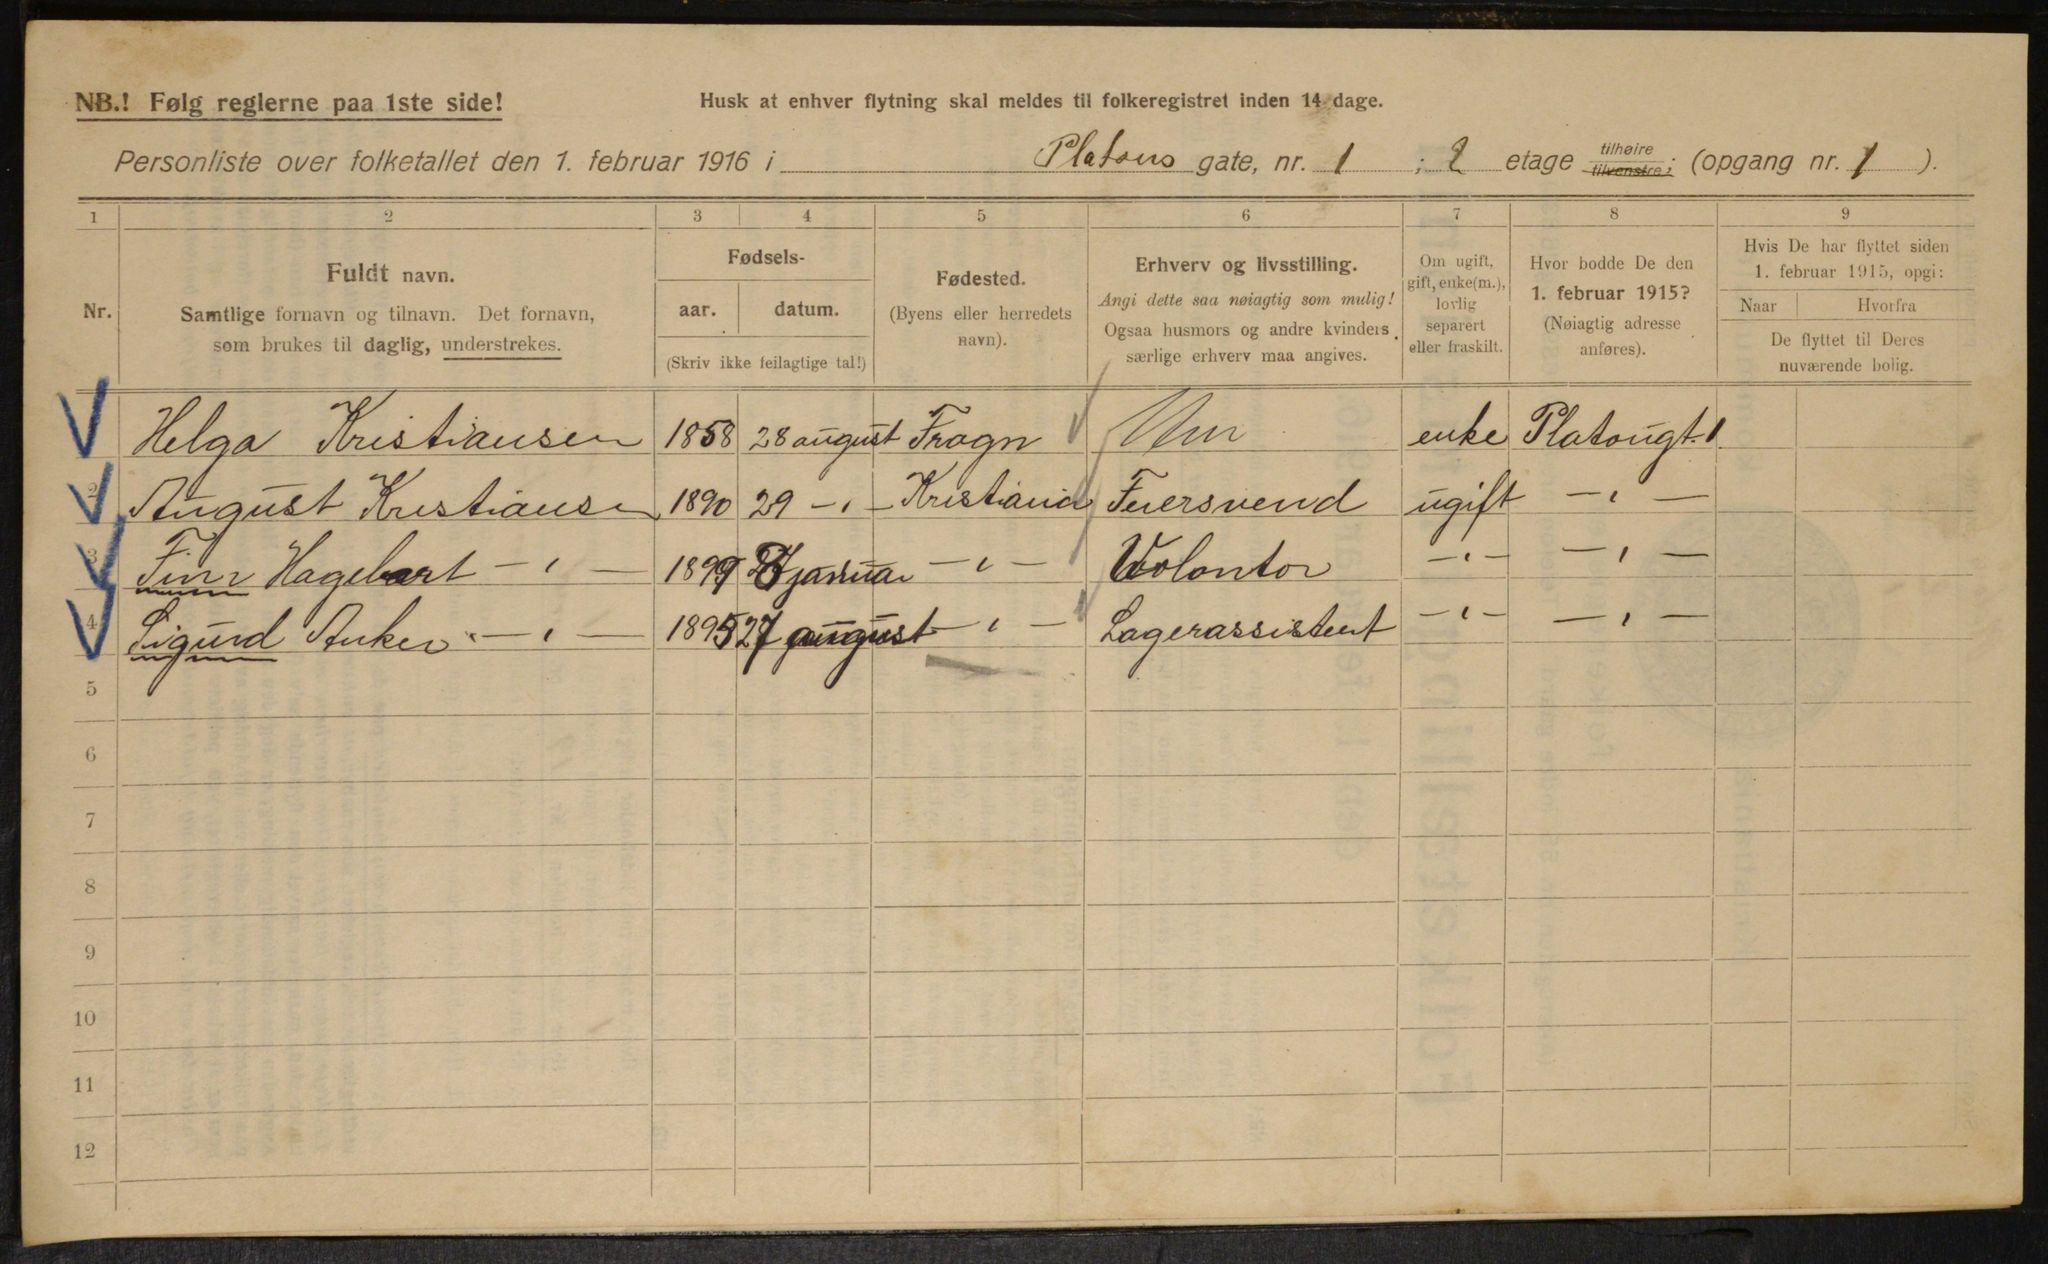 NB.! Følg reglerne paa 1ste side!
Husk at enhver flytning skal meldes til folkeregistret inden 14 dage.
Personliste over folketallet den 1. februar 1916 i Platous gate, nr. 1 ; 2 etage tilhøire tilvenstre; (opgang nr. 1 ).
1 2 3 4 5 6 7 8 9
Nr.
Fuldt navn.
Samtlige fornavn og tilnavn. Det fornavn,
som brukes til daglig, understrekes.
Fødsels-
aar. datum.
(Skriv ikke feilagtige tal!)
Fødested.
(Byens eller herredets
navn).
Erhverv og livsstilling.
Angi dette saa nøiagtig som mulig!
Ogsaa husmors og andre kvinders
særlige erhverv maa angives.
Om ugift,
gift, enke(m.),
lovlig
separert
eller fraskilt.
Hvor bodde De den
1. februar 1915?
(Nøiagtig adresse
anføres).
Hvis De har flyttet siden
1. februar 1915, opgi:
Naar Hvorfra
De flyttet til Deres
nuværende bolig.
Helga Kristiansen 1858 28 august Fragn enke Platougt. 1
2 August Kristiansen 1890 29 -"- Kristiania Feiersvend ugift -"-
3 Finn Hagebart -"- 1899 januar -"- Volontør -"- -"-
4 Sigurd Anker -"- 1895 27 august -"- Lagerassistent -"- -"-
5
6
7
8
9
10
11
12